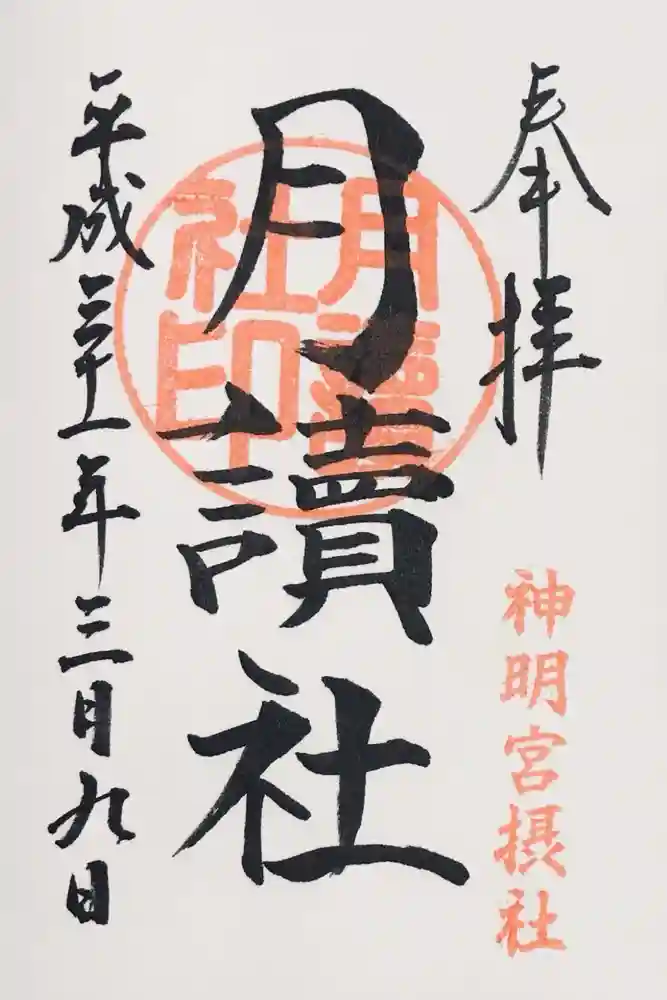 奉拝
神明宮摂社
月讀社
月讀社印
平成三十一年三月九日